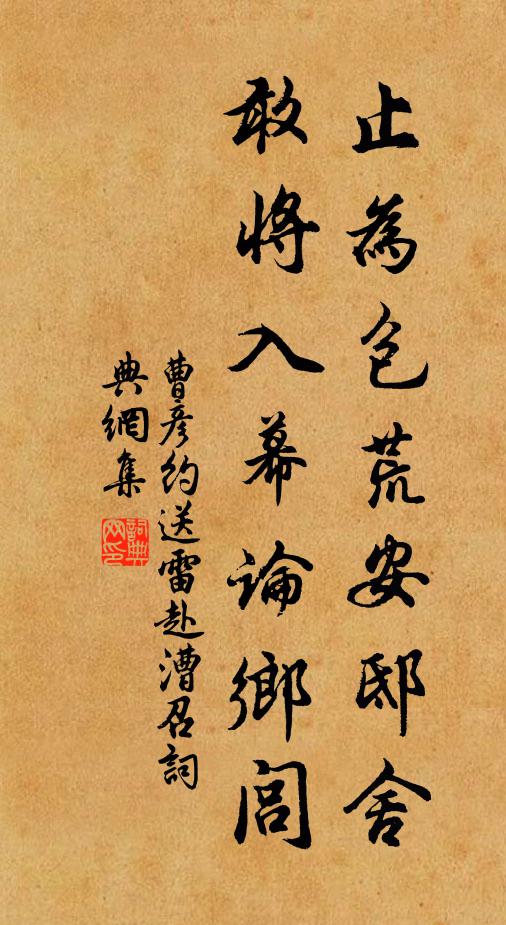 止為包荒安邸舍
敢將入幕論鄉閭
曹彥約送雷赴漕召詞
典網集
詞典網印